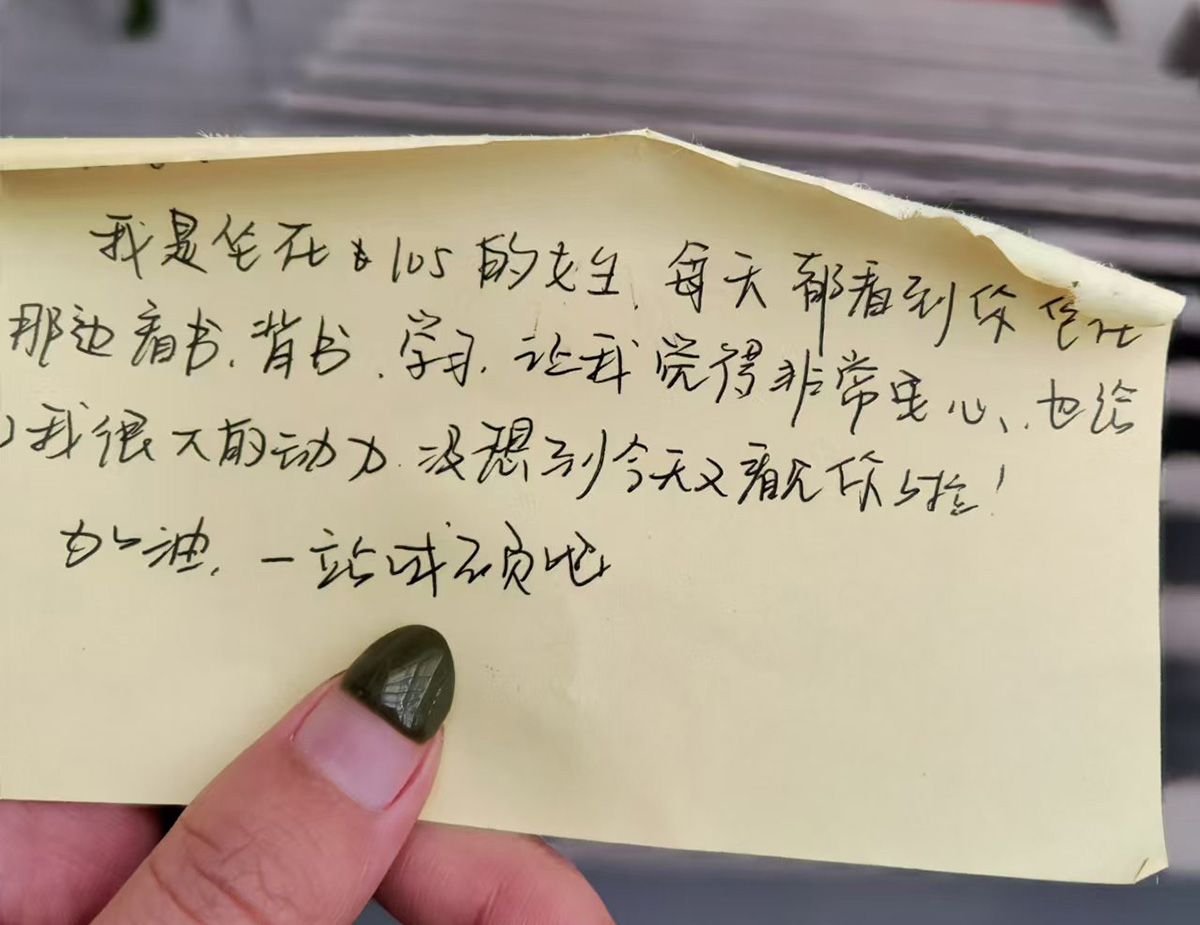 我是坐在105的女生，每天都看到你坐在
那边看书、背书、学习，让我觉得非常安心、也给
了我很大的动力。没想到今天又看见你啦！
加油，一站成硕吧